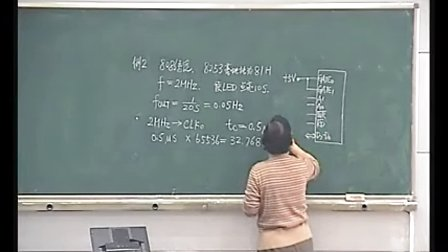 例2. 8088系统, 8253基地址为81H
f=2MHz. 使LED 点亮10S.
fout = 1/20S = 0.05Hz
2MHz → CLK0 tc=0.5μ
0.5μs × 65536 = 32.768
+5V
GATE0
GATE1
A1
A0
WR
RD